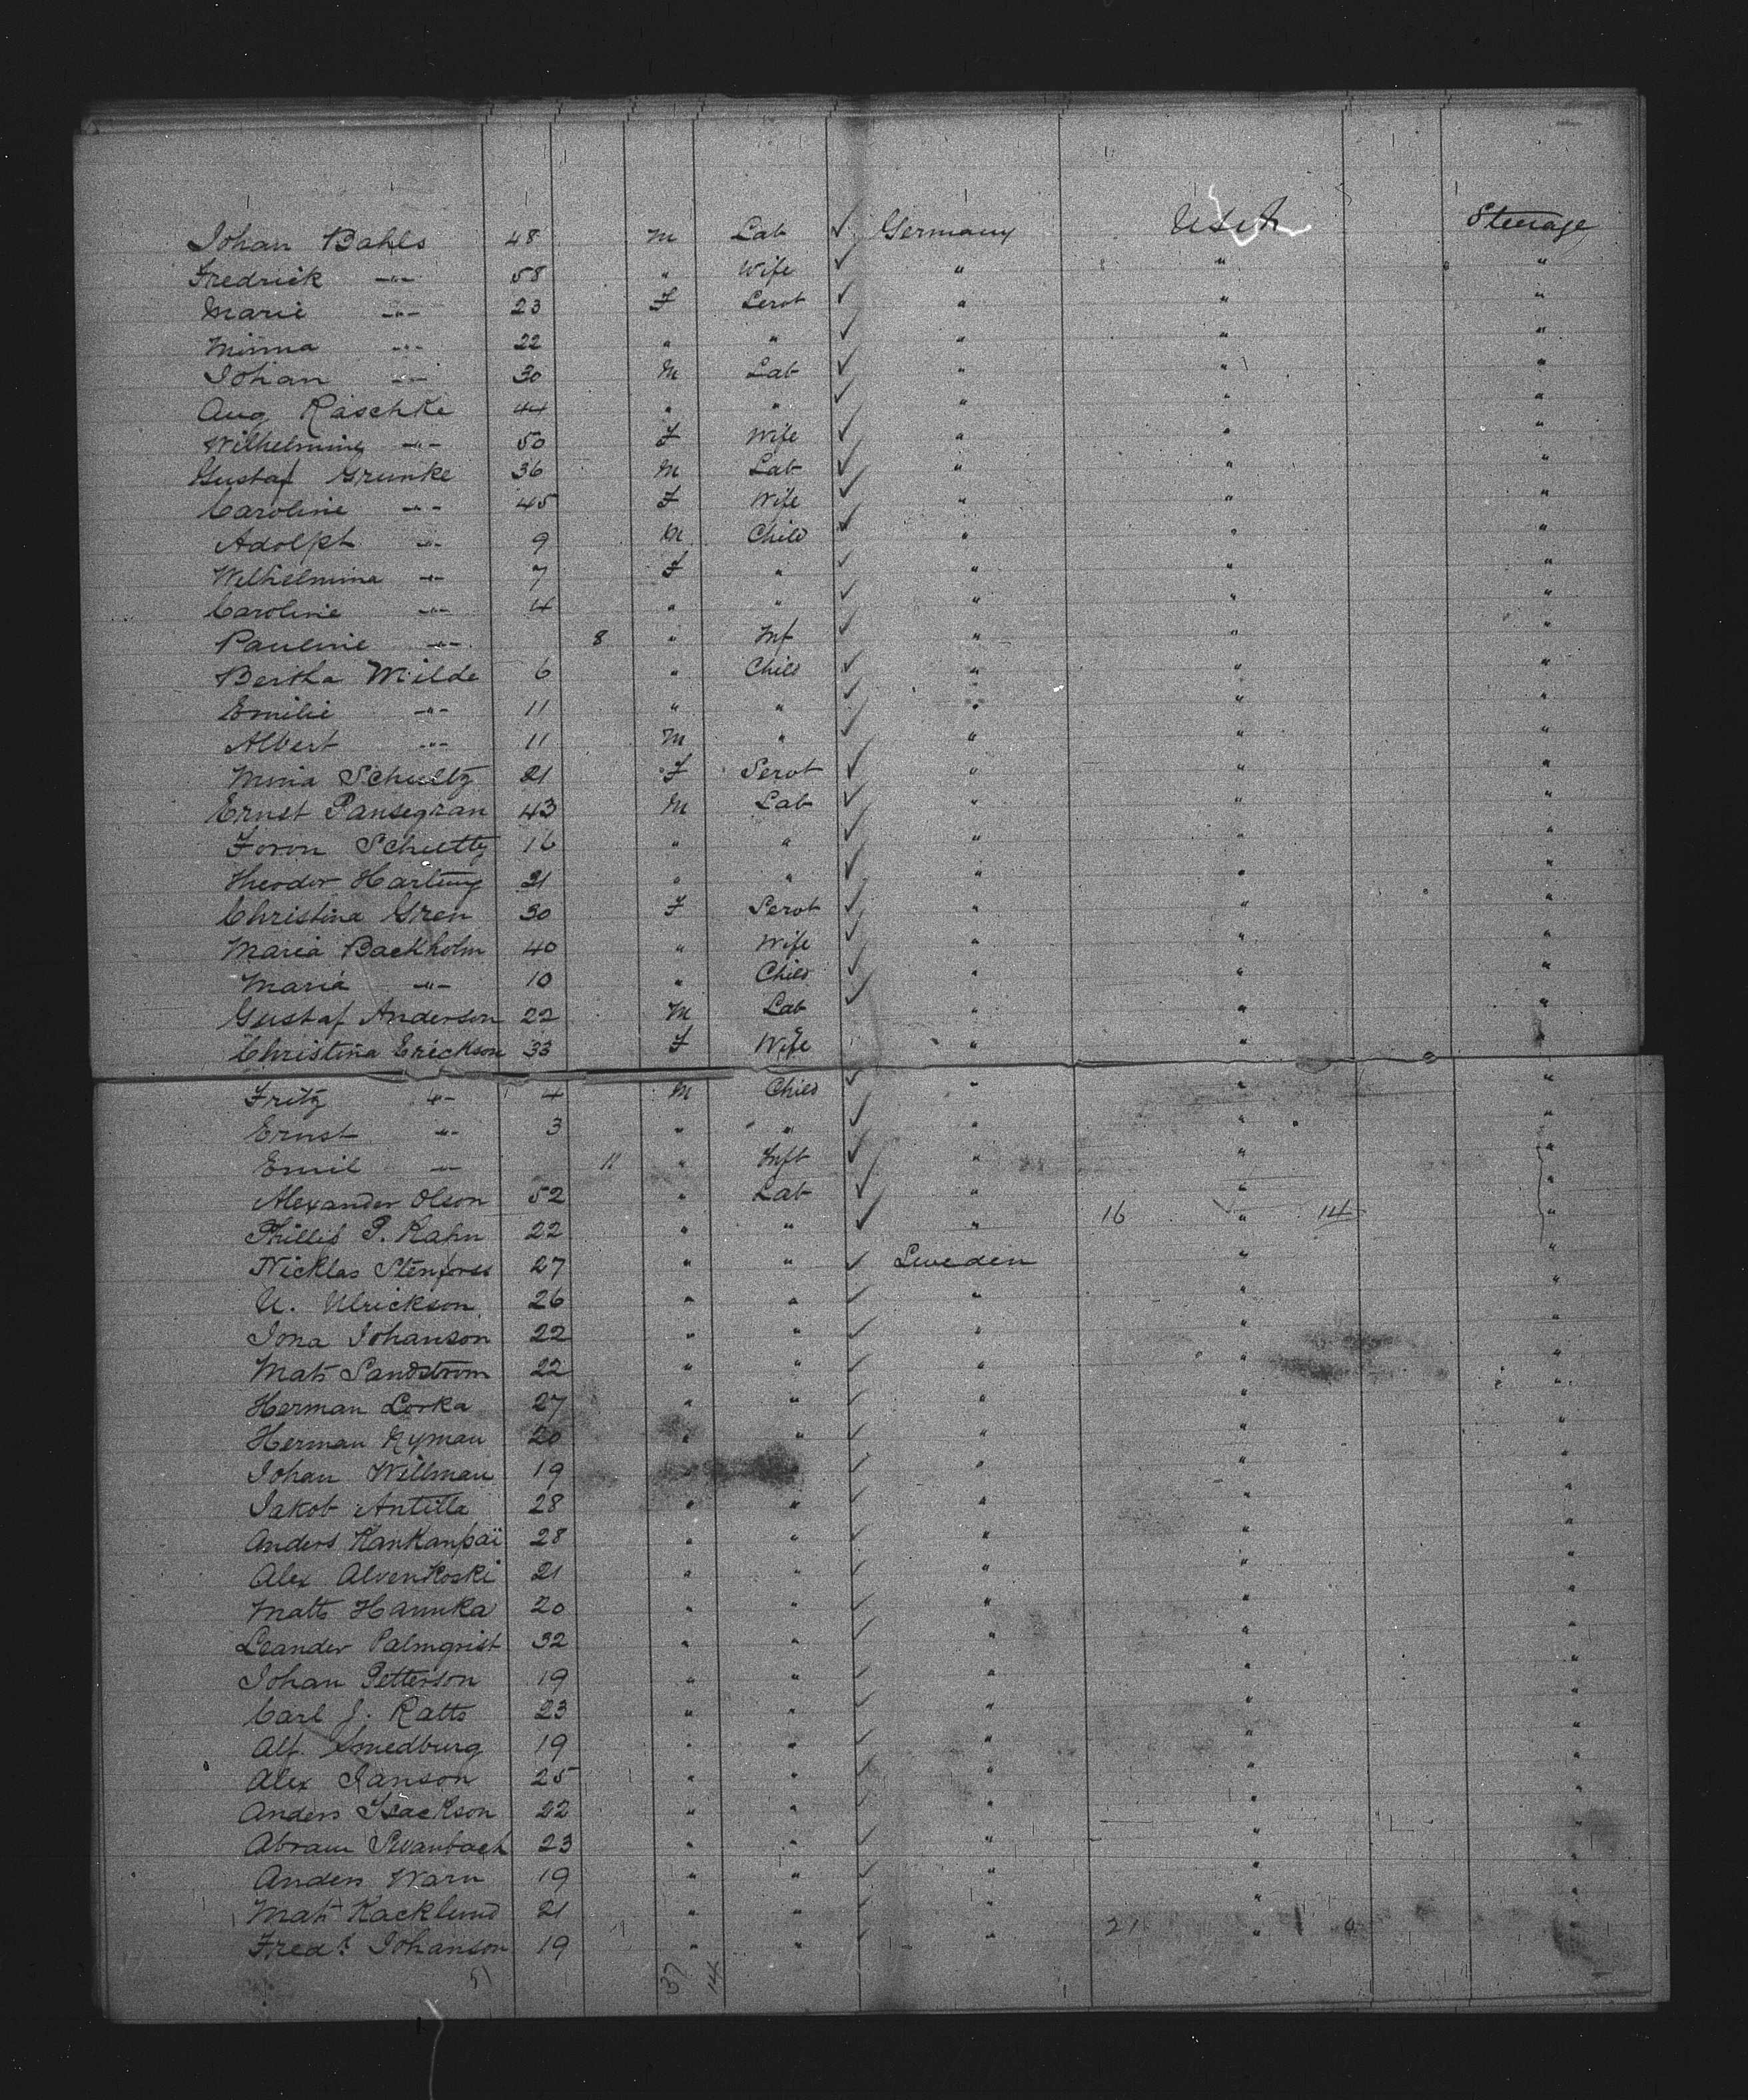 Johan Bahls 48 M Lab ✓ Germany USA Steerage
Fredrick -"- 58 " Wife ✓ " " "
Marie -"- 23 F Servt ✓ " " "
Minna -"- 22 " " ✓ " " "
Johan -"- 30 M Lab ✓ " " "
Aug Raschke 44 " " ✓ " " "
Wilhelmine -"- 50 F Wife ✓ " " "
Gustaf Grunke 36 M Lab ✓ " " "
Caroline -"- 45 F Wife ✓ " " "
Adolph -"- 9 M Child ✓ " " "
Wilhelmina -"- 7 F " ✓ " " "
Caroline -"- 4 " " ✓ " " "
Pauline -"- 8 " Inf ✓ " " "
Bertha Milde 6 " Child ✓ " " "
Emilie -"- 11 " " ✓ " " "
Albert -"- 11 M " ✓ " " "
Schultz 21 F Servt ✓ " " "
Ernst Pansegran 43 M Lab ✓ " " "
Schultz 16 " " ✓ " " "
Theodor Hartung 21 " " ✓ " " "
Christina Gren 30 F Servt ✓ " " "
Maria Backholm 40 " Wife ✓ " " "
Maria -"- 10 " Child ✓ " " "
Gustaf Anderson 22 M Lab ✓ " " "
Christina Erickson 33 F Wife " " "
Fritz -"- 4 M Child ✓ " " "
Ernst -"- 3 " " ✓ " " "
Emil -"- 11 " Inft ✓ " " "
Alexander Olson 52 " Lab ✓ " " "
Phillis P. Kahn 22 " " ✓ " 16 " 14 "
Nicklas Stenfors 27 " " ✓ Sweden " "
U. Ulrickson 26 " " ✓ " " "
Jona Johanson 22 " " ✓ " " "
Mats Sandstrom 22 " " ✓ " " "
Herman Lorka 27 " " ✓ " " "
Herman Nyman 20 " " ✓ " " "
Johan Willman 19 " ✓ " " "
Jakob Antilla 28 " " ✓ " " "
Anders Kankanpai 28 " " ✓ " " "
Alex Alvenkoski 21 " " ✓ " " "
Matts Hannka 20 " " ✓ " " "
Leander Palmqvist 32 " " ✓ " " "
Johan Petterson 19 " " ✓ " " "
Carl J. Ratts 23 " " ✓ " " "
Alf. Smedburg 19 " " ✓ " " "
Alex Janson 25 " " ✓ " " "
Anders Isackson 22 " " ✓ " " "
Abram Svanbach 23 " " ✓ " " "
Anders Warn 19 " " ✓ " " "
Mats Kacklund 21 " " ✓ " " "
Fredk Johanson 19 " " ✓ " 21 "
51 37 14